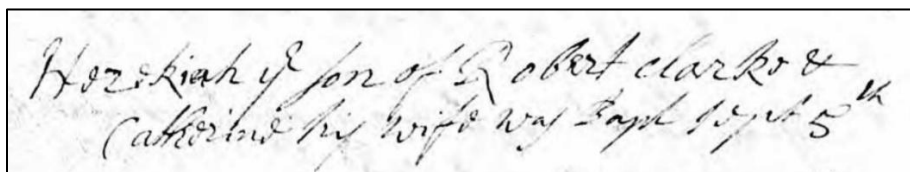 Hezekiah ye son of Robert Clarke &
Catherine his wife was Bapt Sept 5th